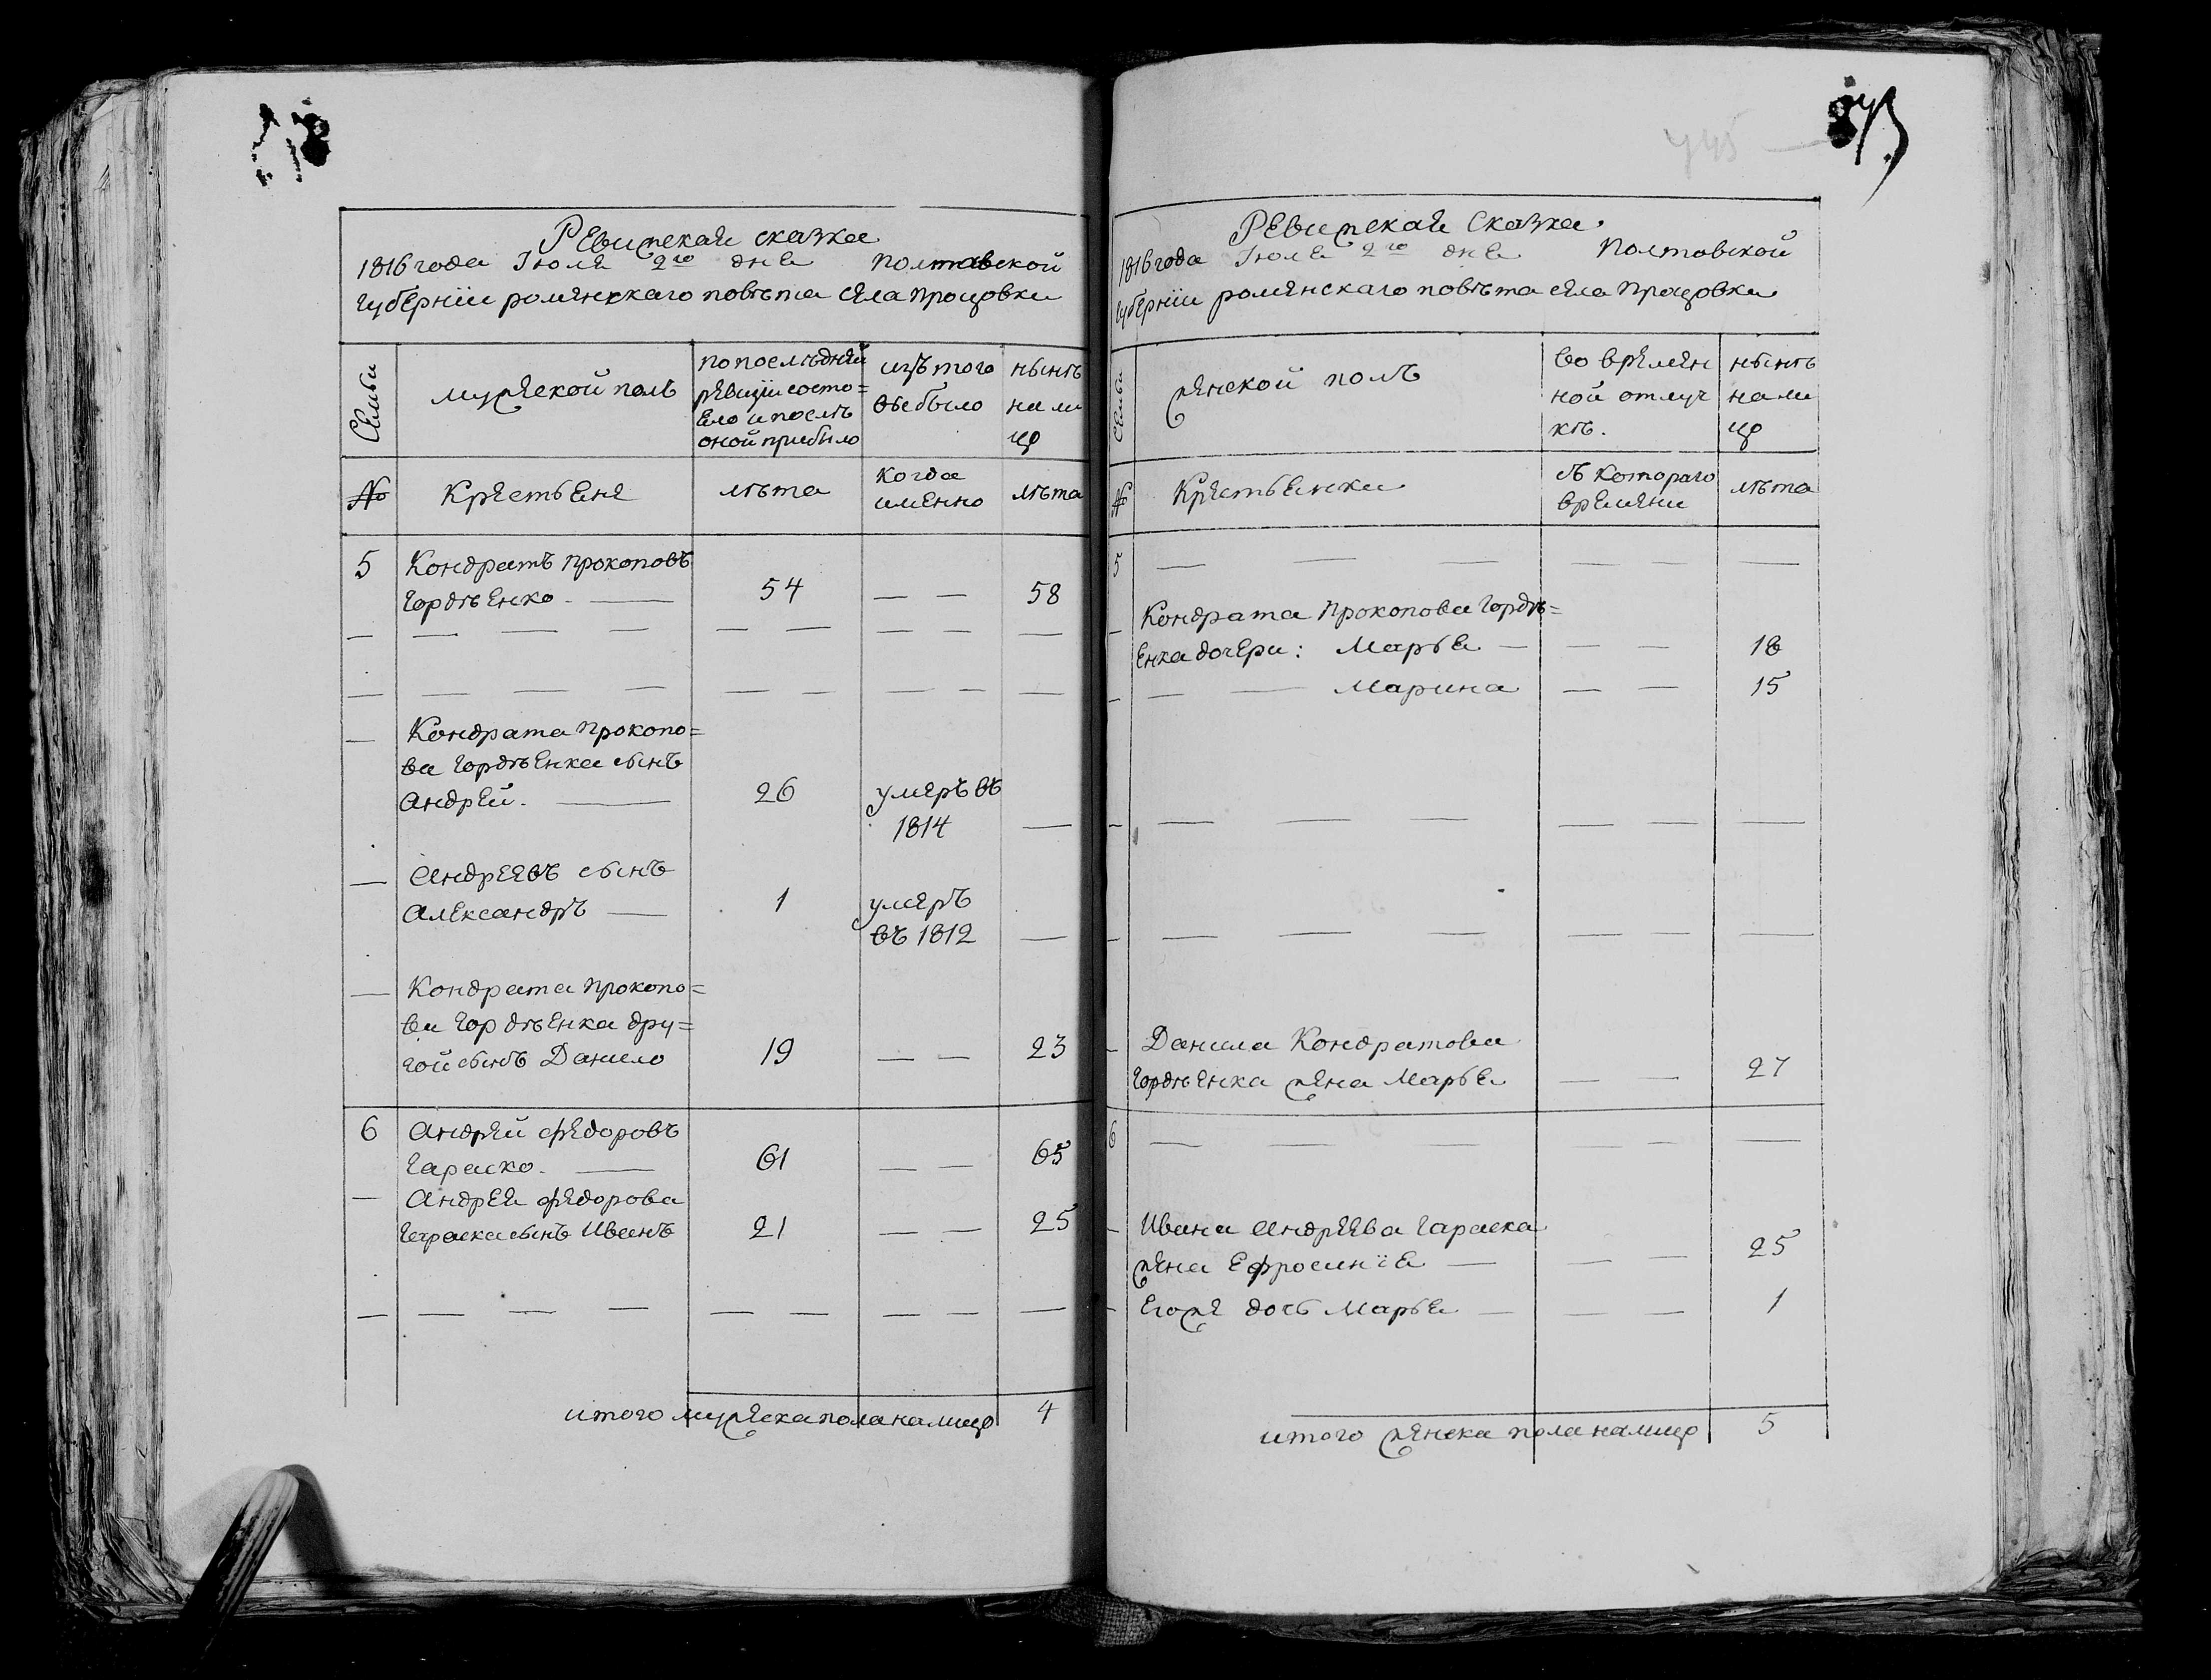 Ревижская сказка
1816 года Июля 2го дня Полтавской
губерніи роменскаго повѣта села Процовки
Семьи
мужеской полъ
по послѣдней
ревизіи состо=
яло и послѣ
оной прибыло
изъ того
выбыло
нынѣ
на ли
цо
№
Крестьяне
лѣта
когда
именно
лѣта
5
Кондратъ Прокоповъ
Гордѣенко.
54
58
Кондрата Прокопо=
ва Гордѣенка сынъ
Андрей.
26
умеръ въ
1814
Андреевъ сынъ
Александръ
1
умеръ
въ 1812
Кондрата Прокопо=
ва Гордѣенка дру=
гой сынъ Данило
19
23
6
Андрей Федоровъ
Гараско.
61
65
Андрея Федорова
Гараска сынъ Иванъ
21
25
итого мужеска пола налицо
4
Ревижская Сказка
1816 года Июля 2го дня Полтовской
губерніи роменскаго повѣта села Процовки
Семьи
женской полъ
Во времен
ной отлуч
кѣ.
нынѣ
на ли
цо
№
Крестьянки
съ котораго
времени
лѣта
5
Кондрата Прокопова Гордѣ=
енка дочери: Марья
18
Марина
15
Данила Кондратова
Гордѣенка жена Марья
27
6
Ивана Андреева Гараска
жена Ефросинія
25
Егоже дочь Марья
1
итого женска пола налицо
5